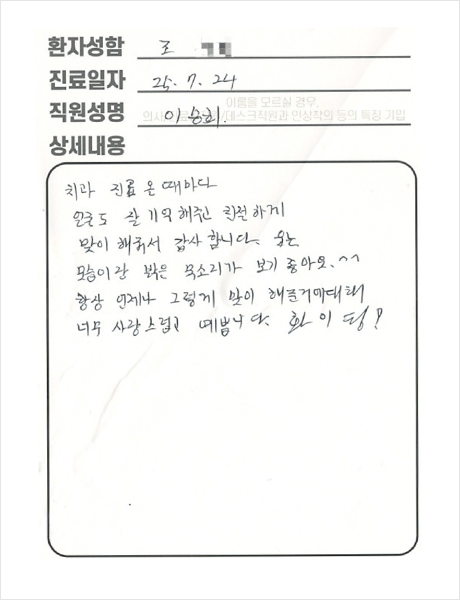 환자성함 조
진료일자 25. 7. 24
직원성명 이승희.
이름을 모르실 경우,
의사 /데스크직원과 인상착의 등의 특징 기입
상세내용
치과 진료 온 때마다
얼굴도 잘 기억해주고 친절하게
맞이 해줘서 감사 합니다. 웃는
모습이랑 밝은 목소리가 보기 좋아요.^^
항상 언제나 그렇게 맞이 해줄거에대해
너무 사랑스럽고 예쁩니다. 화이팅!